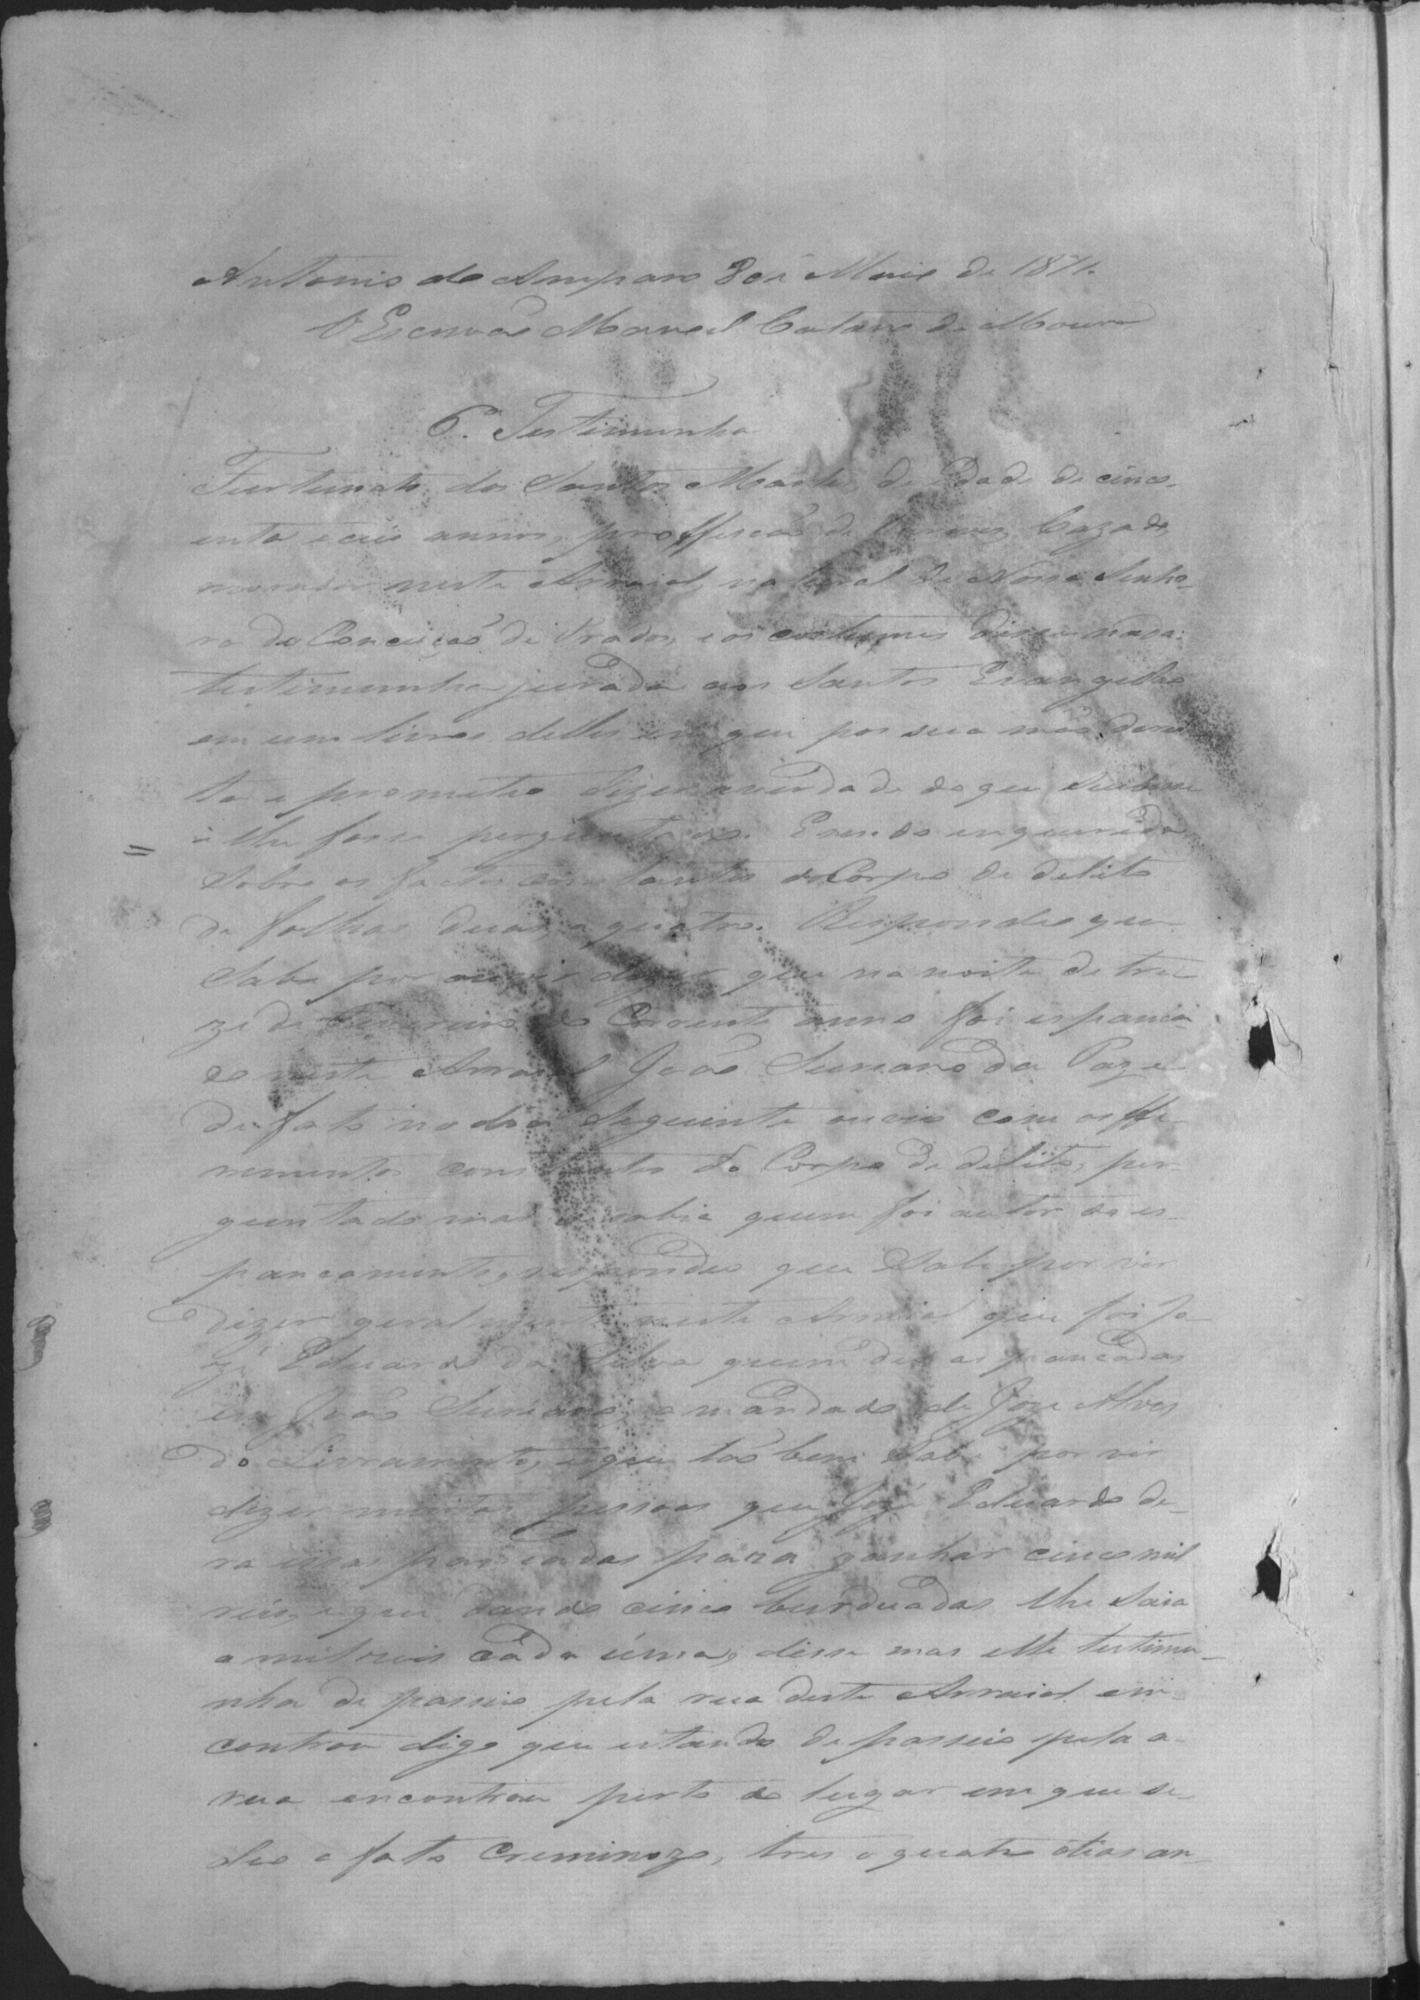 Antonio do Amparo 30 de Maio de 1871.
O Escrivaõ Manoel Caetano de Moura
6ª. Testimunha
Furtunato dos Santos de Idade de cinco-
enta e annos, proffissaõ de Cazado,
morador neste Arraial, natural de Nossa Senho-
ra da Conceiçaõ de Prados, e os costumes disse nada:
testimunha jurada aos Santos Evangelhos
em um livro delles em que pos sua maõ direi
ta e prometeo dizer a verdade do que Subese
e lhe fose perguntado. E sendo enquerida
Sobre os factos constantes do Corpo de delito
de folhas duas a quatro. Respondeo que
Sabe por ouvir dizer que na noite de tre
ze de do Corrente anno foi espanca
do neste Arraial Joaõ Suriano da Paz e
de fato no dia Seguinte ouvio com os ffe
rimentos constantes do Corpo de delito, per-
guntado mais se sabia quem foi autor do es-
pancamento, respondeo que Sabe por vir
dizer geralmente neste Arraial que foi Jo
zé Eduardo da Silva quem deo as pancadas
em Joaõ Suriano, a mandado de Jose Alves
do Livramento, e que taõ bem Sabe por vir
dizer muitas pessoas que José Eduardo de-
ra essas pancadas para ganhar cinco mil
reis, e que dando cinco burduadas lhe Saia
a mil reis cada uma, disse mas elle testimu-
nha de passeio pela rua deste Arraial en-
controu digo que estando de passeio pela a-
rua encontrou perto do lugar em que se-
deo o fato Creminozo, tres o quatro dias an-